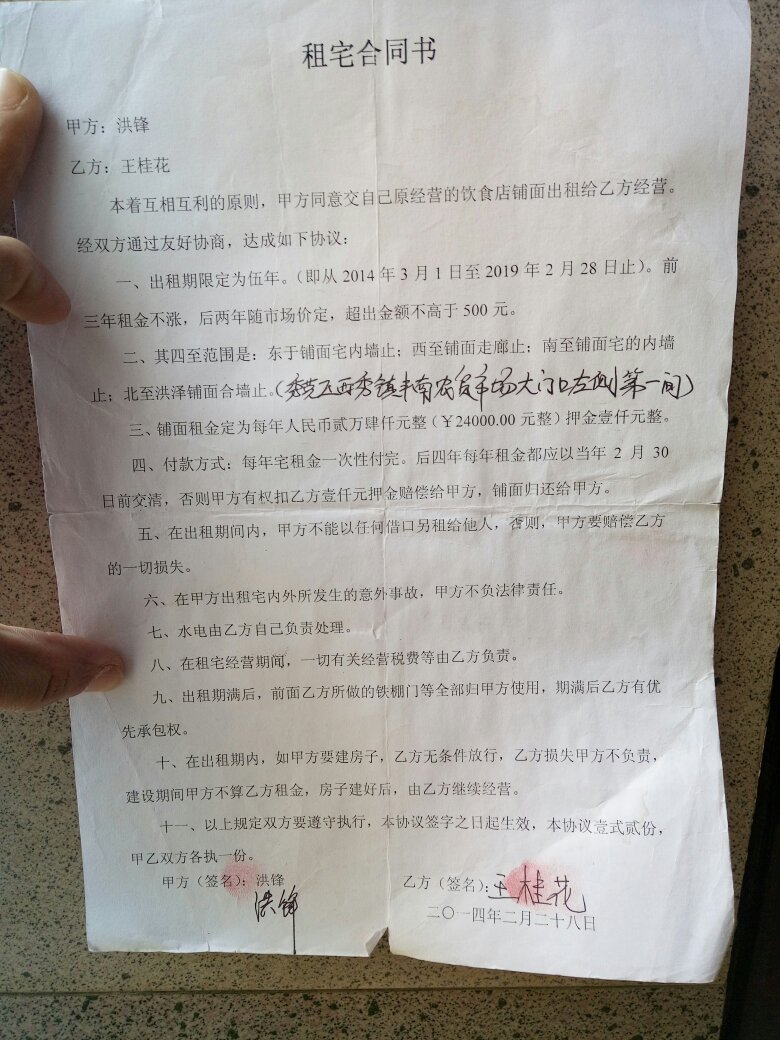 租宅合同书
甲方：洪锋
乙方：王桂花
本着互相互利的原则，甲方同意交自己原经营的饮食店铺面出租给乙方经营。
经双方通过友好协商，达成如下协议：
一、出租期限定为伍年。（即从2014年3月1日至2019年2月28日止）。前
三年租金不涨，后两年随市场价定，超出金额不高于500元。
二、其四至范围是：东于铺面宅内墙止；西至铺面走廊止；南至铺面宅的内墙
止；北至洪泽铺面合墙止。（秀英区西秀镇丰南农贸市场大门口左侧第一间）
三、铺面租金定为每年人民币贰万肆仟元整（￥24000.00元整）押金壹仟元整。
四、付款方式：每年宅租金一次性付完。后四年每年租金都应以当年 2 月 30
日前交清，否则甲方有权扣乙方壹仟元押金赔偿给甲方，铺面归还给甲方。
五、在出租期间内，甲方不能以任何借口另租给他人，否则，甲方要赔偿乙方
的一切损失。
六、在甲方出租宅内外所发生的意外事故，甲方不负法律责任。
七、水电由乙方自己负责处理。
八、在租宅经营期间，一切有关经营税费等由乙方负责。
九、出租期满后，前面乙方所做的铁棚门等全部归甲方使用，期满后乙方有优
先承包权。
十、在出租期内，如甲方要建房子，乙方无条件放行，乙方损失甲方不负责，
建设期间甲方不算乙方租金，房子建好后，由乙方继续经营。
十一、以上规定双方要遵守执行，本协议签字之日起生效，本协议壹式贰份，
甲乙双方各执一份。
甲方（签名）：洪锋
洪锋
乙方（签名）：王桂花
二〇一四年二月二十八日